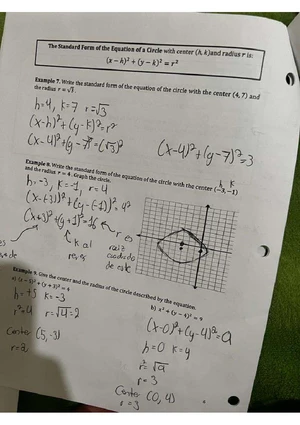 The Standard Form of the Equation of a Circle with center (h, k) and radius r is:
(x − h)² + (y − k)² = r²
Example 7. Write the standard form of the equation of the circle with the center (4, 7) and
the radius r = √3.
h=4, k=7 r=√3
(x-h)²+(y-k)²=r²
(x-4)²+(y-7)²=(√3)²
(x-4)²+(y-7)²=3
Example 8. Write the standard form of the equation of the circle with the center (−3, −1)
and the radius r = 4. Graph the circle.
h k
h=-3, k=-1, r=4
(x-(-3))²+(y-(-1))²=4²
(x+3)²+(y+1)²=16
r es
raiz
cuadrada
de este
k al
Example 9. Give the center and the radius of the circle described by the equation.
a) (x − 5)² + (y + 3)² = 4
h=+5 k=-3
r²=4 r=√4=2
Center (5,-3)
r=2
b) x² + (y − 4)² = 9
(x-0)²+(y-4)²=9
h=0 k=4
r²=√9
r=3
Center (0,4)
r=3